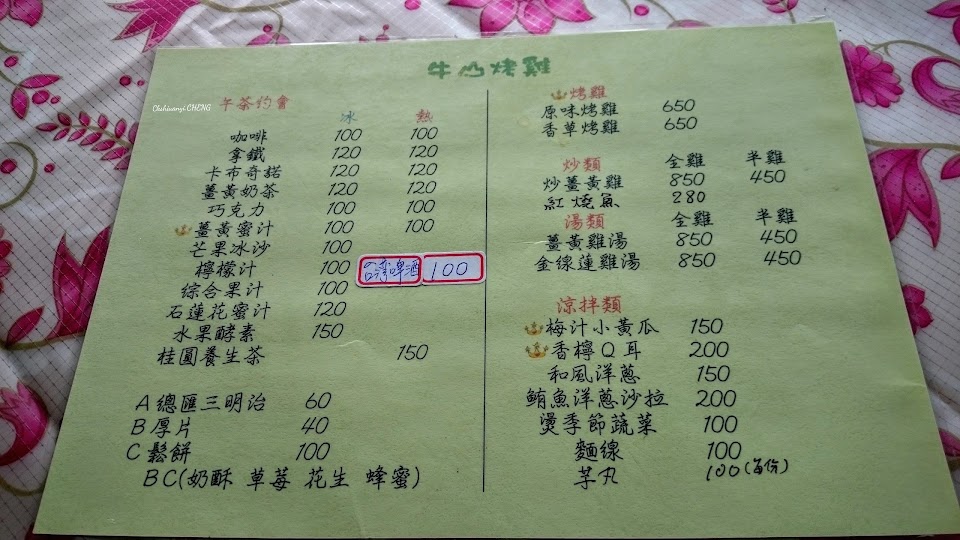 牛心烤雞
Chihwanyi CHENG
午茶約會
冰 熱
咖啡 100 100
拿鐵 120 120
卡布奇諾 120 120
薑黃奶茶 120 120
巧克力 100 100
薑黃蜜汁 100 100
芒果冰沙 100
檸檬汁 100
台灣啤酒 100
綜合果汁 100
石蓮花蜜汁 120
水果酵素 150
桂圓養生茶 150
A總匯三明治 60
B厚片 40
C鬆餅 100
BC(奶酥 草莓 花生 蜂蜜)
烤雞
原味烤雞 650
香草烤雞 650
炒類 全雞 半雞
炒薑黃雞 850 450
紅燒魚 280
湯類 全雞 半雞
薑黃雞湯 850 450
金線蓮雞湯 850 450
涼拌類
梅汁小黃瓜 150
香檸Q耳 200
和風洋蔥 150
鮪魚洋蔥沙拉 200
燙季節蔬菜 100
麵線 100
芋丸 100(每份)